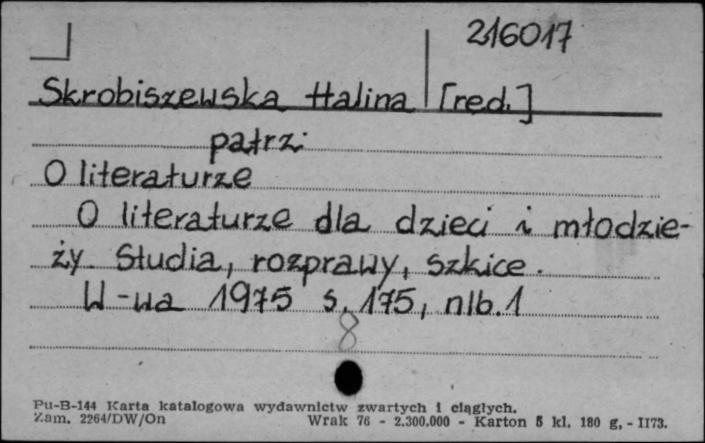 216017
Skrobiszewska Halina [red.]
patrz:
O literaturze
O literaturze dla dzieci i młodzie-
ży. Studia, rozprawy, szkice.
W-wa 1975 s. 175, nlb. 1
8
Pu-B-144 Karta katalogowa wydawnictw zwartych i ciągłych.
Zam. 2264/DW/On Wrak 76 - 2.300.000 - Karton 5 kl. 180 g. - II73.